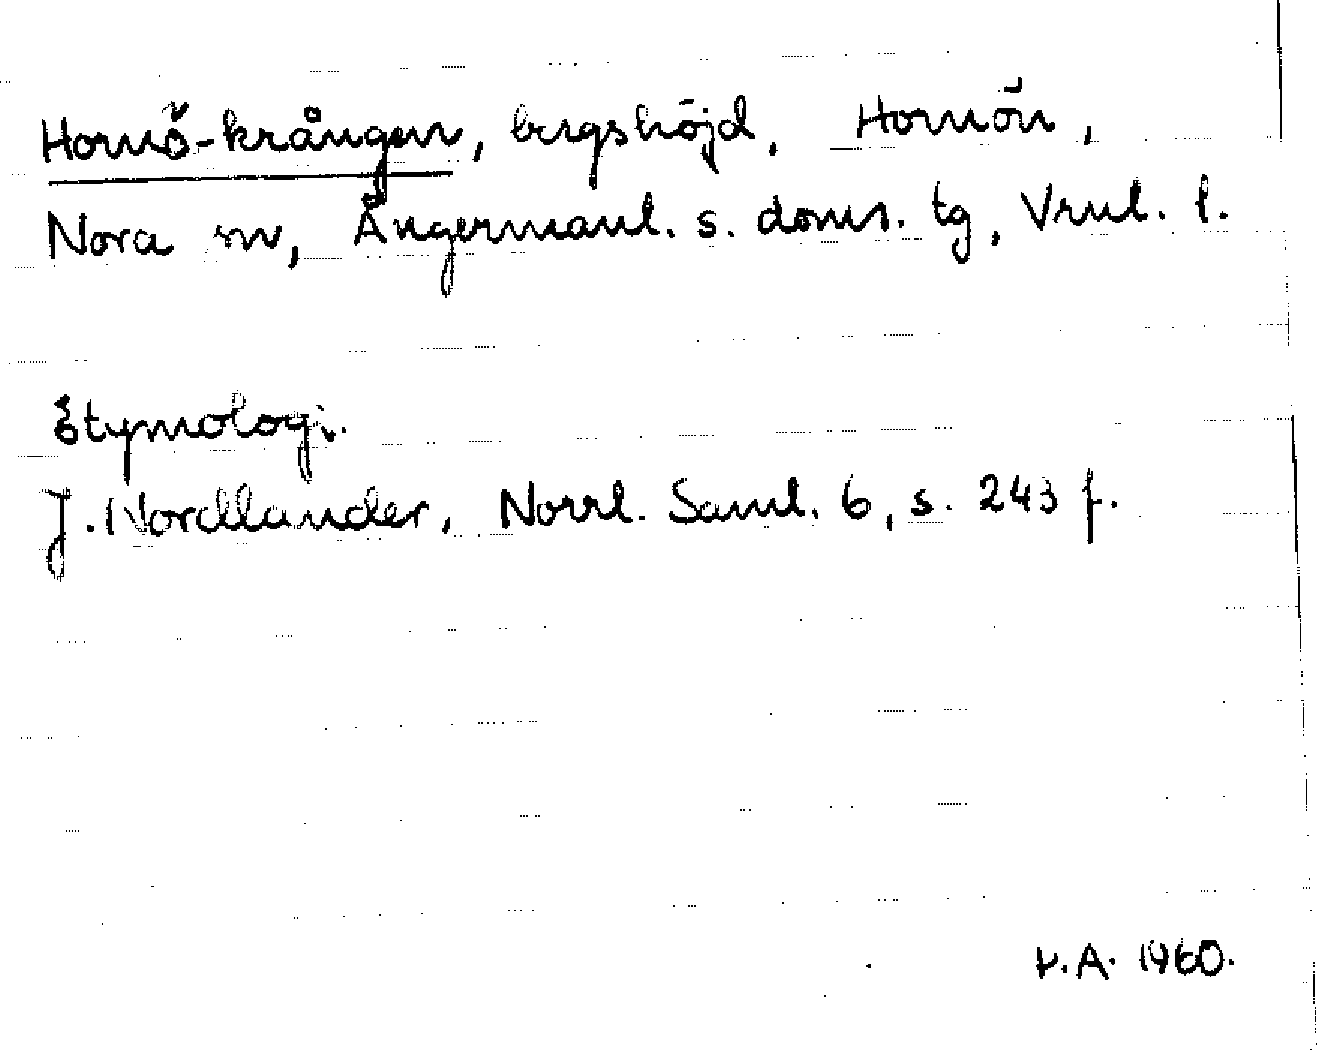 Hornö-krången, bergshöjd, Hornön,
Nora sn, Ångermanl. s. doms. tg, Vrnl. l.
Etymologi.
J. Nordlander, Norrl. Saml. 6, s. 243 f.
V.A. 1960.